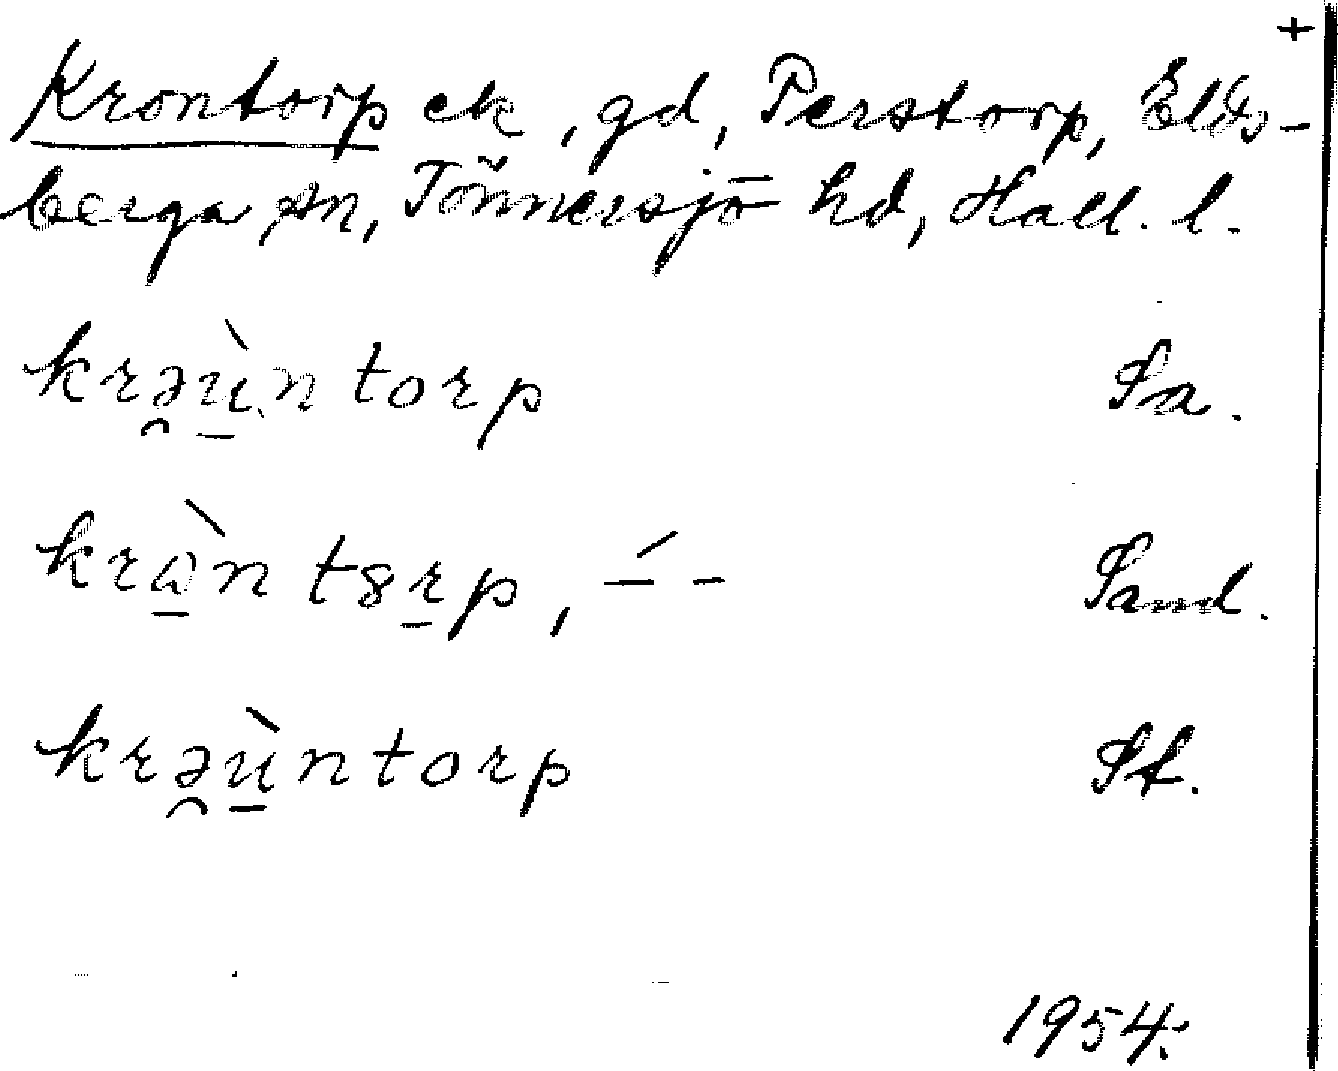 +
Krontorp ek, gd, Perstorp, Elds-
berga sn, Tönnersjö hd, Hall. l.
krə̯ù̱ntorp Sa.
krὼ̱nt8ṟp, –́ - Sand.
krə̯ù̱ntorp Sf.
1954.